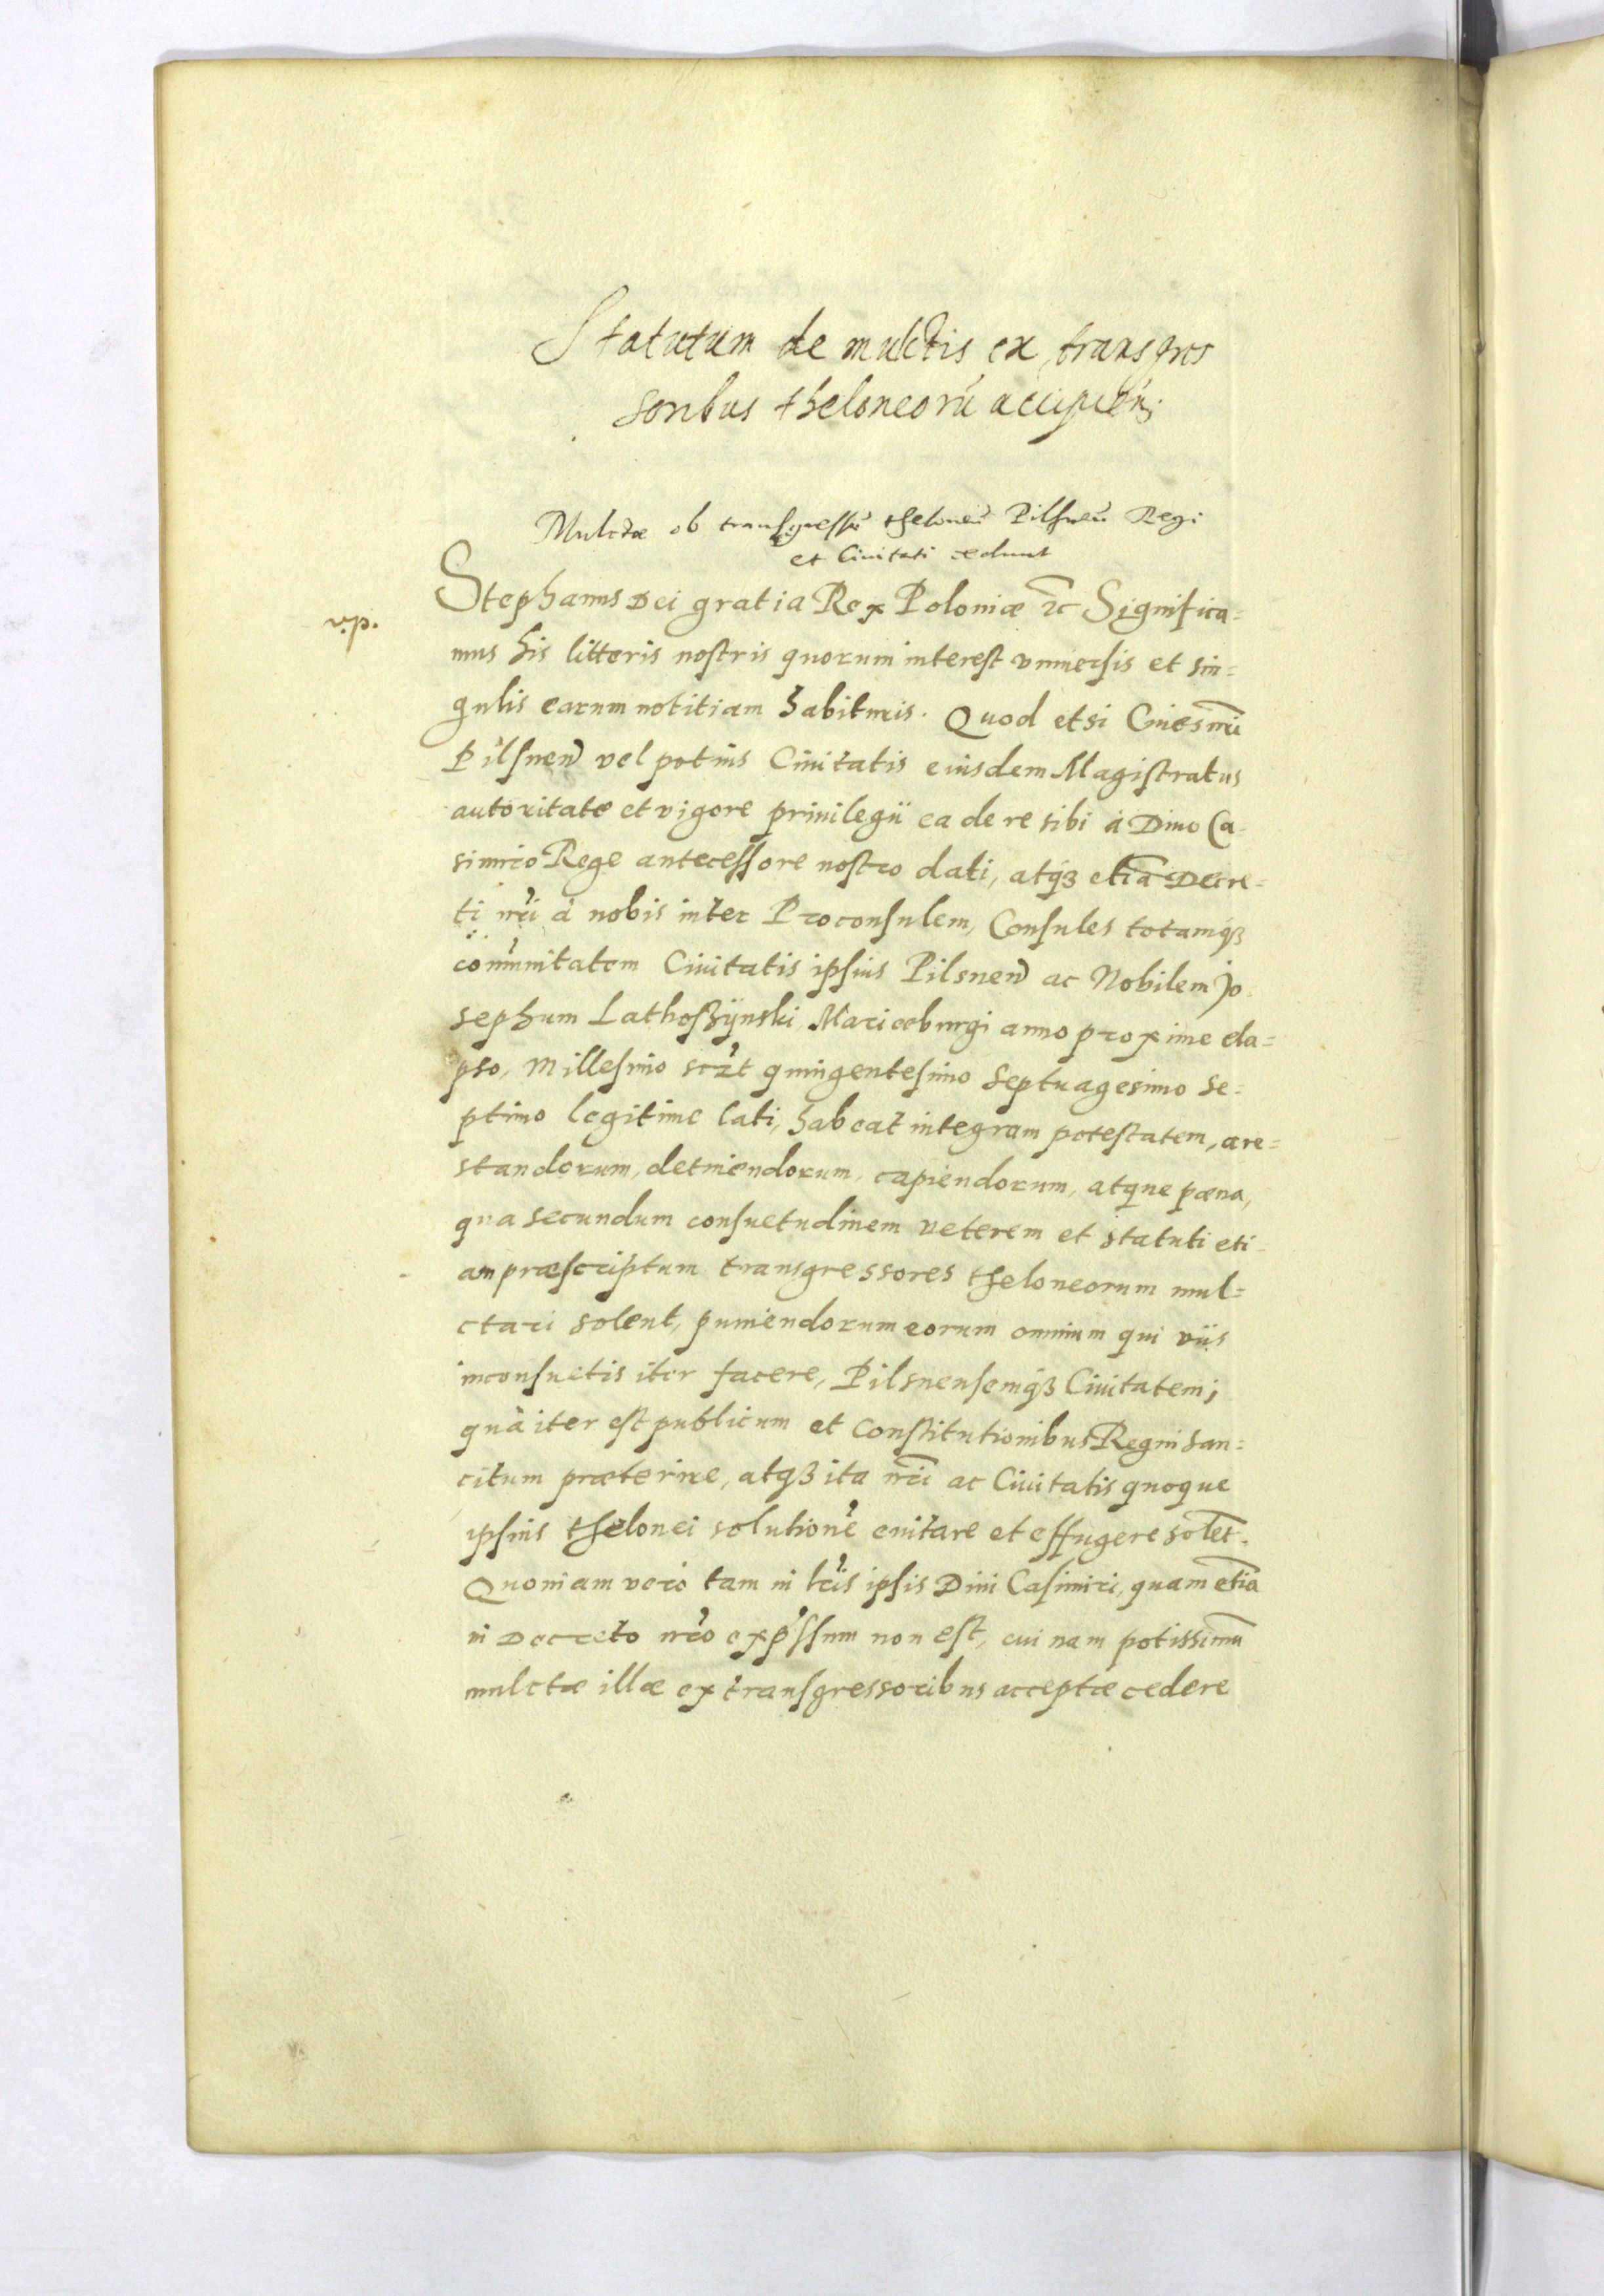 Statutum de mulctis ex transgres
soribus theloneorũ accipien͂
Mulctæ ob transgressũ thelonei Pilsnen͂ Regi
et Ciuitati cedunt
v.p.
Stephanus Dei gratia Rex Poloniæ ꝛc Significa=
mus his litteris nostris quorum interest vniuersis et sin=
gulis earum notitiam habituris. Quod etsi Ciues nr̃i
Pilsnen͂ vel potius Ciuitatis eiusdem Magistratus
autoritate et vigore priuilegij ea de re sibi á Diuo Ca=
simiro Rege antecessore nostro dati, atqꝫ etiã Decre=
ti nr̃i á nobis inter Proconsulem, Consules totamqꝫ
com̃unitatem Ciuitatis ipsius Pilsnen͂ ac Nobilem Jo=
sephum Lathoszÿnski Mariæburgi anno proxime ela=
pso, Millesimo sczt quingentesimo Septuagesimo Se=
ptimo legitime lati, habeat integram potestatem, are=
standorum, detinendorum, capiendorum, atque pæna,
qua secundum consuetudinem veterem et statuti eti=
am præscriptum transgressores theloneorum mul=
ctari solent, puniendorum eorum omnium qui viis
inconsuetis iter facere, Pilsnensemqꝫ Ciuitatem,
quà iter est publicum et Constitutionibus Regni San=
citum præterire, atqꝫ ita nr̃i ac Ciuitatis quoque
ipsius thelonei solutionẽ euitare et effugere solẽt.
Quoniam vero tam in lr̃is ipsis Diui Casimiri, quam etiã
in Decreto nr̃o exp̃ssum non est, cui nam potissimũ
mulctæ illæ ex transgressoribus acceptæ cedere